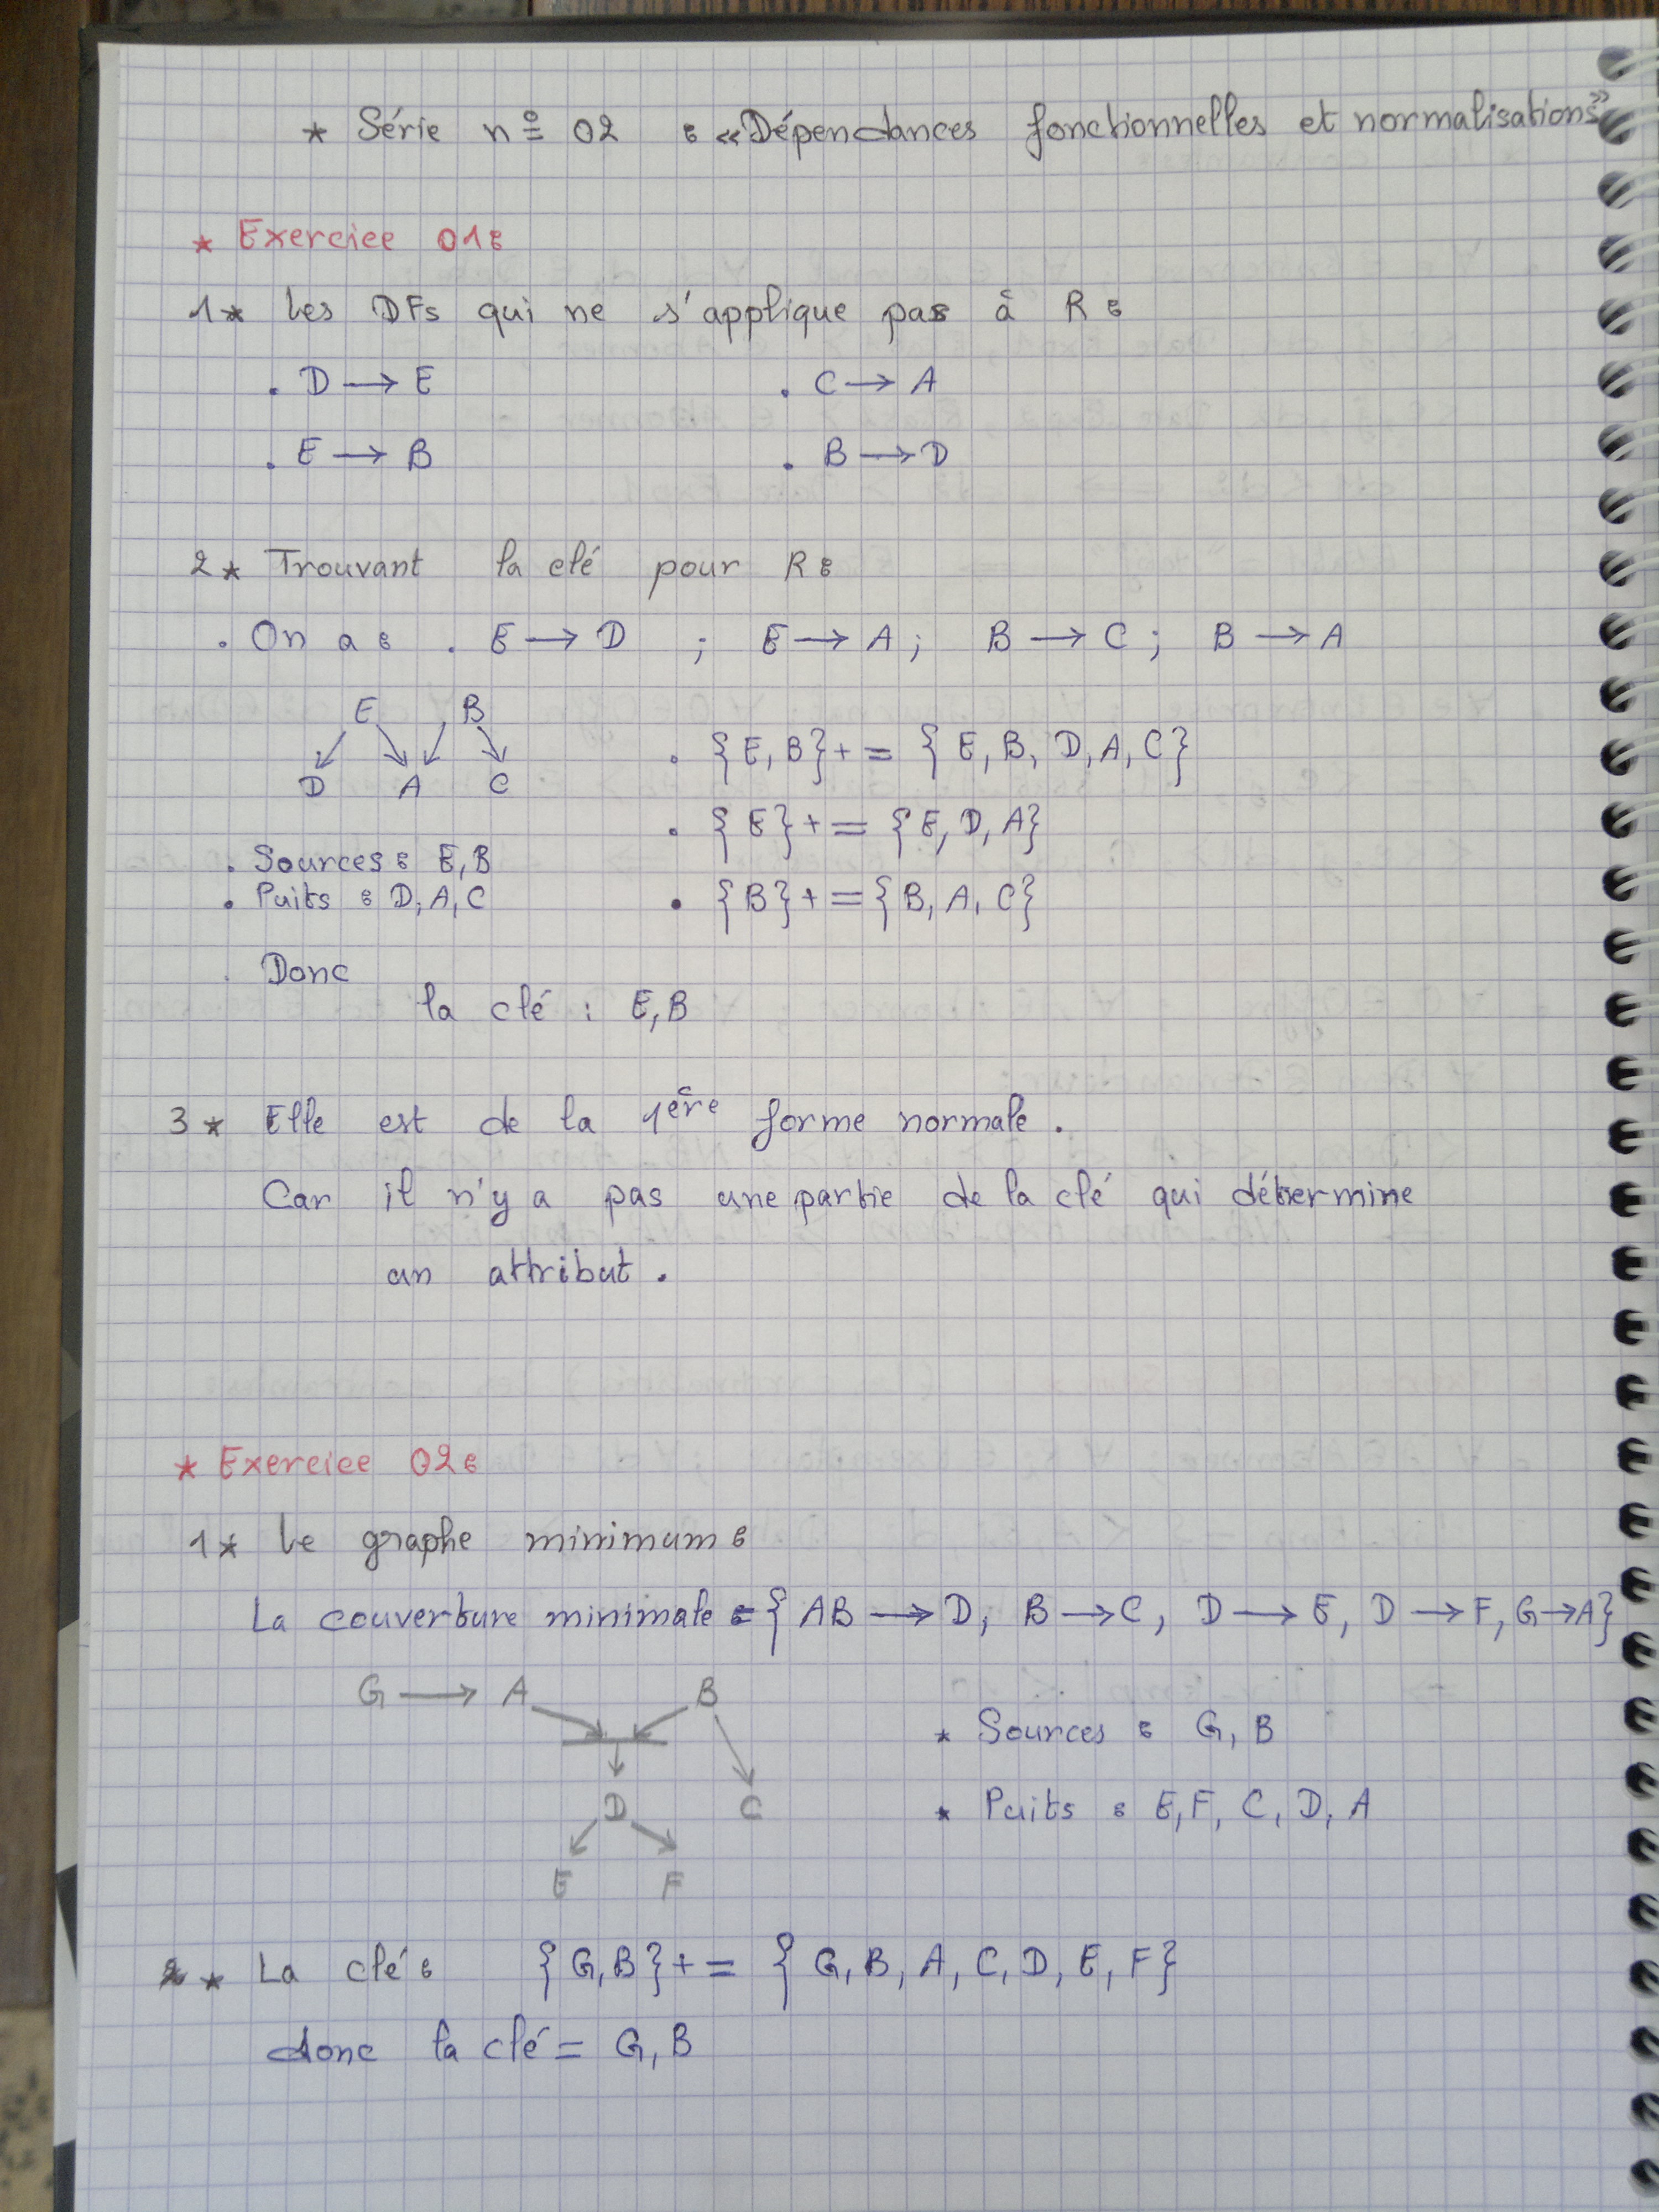 * Série n° 02 : «Dépendances fonctionnelles et normalisations»
* Exercice 01:
1* Les DFs qui ne s'applique pas à R:
. D → E . C → A
. E → B . B → D
2* Trouvant la clé pour R:
. On a : . E → D ; E → A ; B → C ; B → A
E B
D A C
. {E, B}+ = {E, B, D, A, C}
. {E}+ = {E, D, A}
. Sources : E, B
. Puits : D, A, C
. {B}+ = {B, A, C}
. Donc
la clé : E, B
3* Elle est de la 1ère forme normale.
Car il n'y a pas une partie de la clé qui détermine
un attribut.
* Exercice 02:
1* Le graphe minimum:
La couverture minimale = {AB → D, B → C, D → E, D → F, G → A}
G → A B
* Sources : G, B
D C
* Puits : E, F, C, D, A
E F
2* La clé : {G, B}+ = {G, B, A, C, D, E, F}
donc la clé = G, B